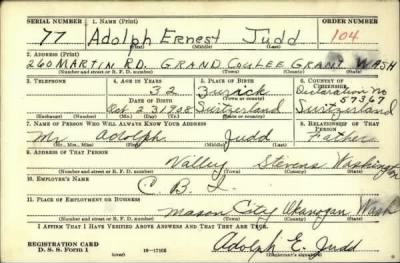 SERIAL NUMBER 1. NAME (Print) ORDER NUMBER
77 Adolph Ernest Judd 104
(First) (Middle) (Last)
2. ADDRESS (Print)
260 MARTIN RD. GRAND COULEE GRANT WASH
(Number and street or R. F. D. number) (Town) (County) (State)
3. TELEPHONE 4. AGE IN YEARS 5. PLACE OF BIRTH 6. COUNTRY OF CITIZENSHIP
32 Zurich Declaration No
DATE OF BIRTH (Town or county) 57367
Oct 2 31908 Switzerland Switzerland
(Exchange) (Number) (Mo.) (Day) (Yr.) (State or country)
7. NAME OF PERSON WHO WILL ALWAYS KNOW YOUR ADDRESS 8. RELATIONSHIP OF THAT PERSON
Mr Adolph Judd Father
(Mr., Mrs., Miss) (First) (Middle) (Last)
9. ADDRESS OF THAT PERSON
Valley Stevens Washington
(Number and street or R. F. D. number) (Town) (County) (State)
10. EMPLOYER'S NAME
C. B. I.
11. PLACE OF EMPLOYMENT OR BUSINESS
Mason City Okanogan Wash
(Number and street or R. F. D. number) (Town) (County) (State)
I AFFIRM THAT I HAVE VERIFIED ABOVE ANSWERS AND THAT THEY ARE TRUE.
REGISTRATION CARD
D. S. S. Form 1 16-17105 Adolph E. Judd
(Registrant's signature)